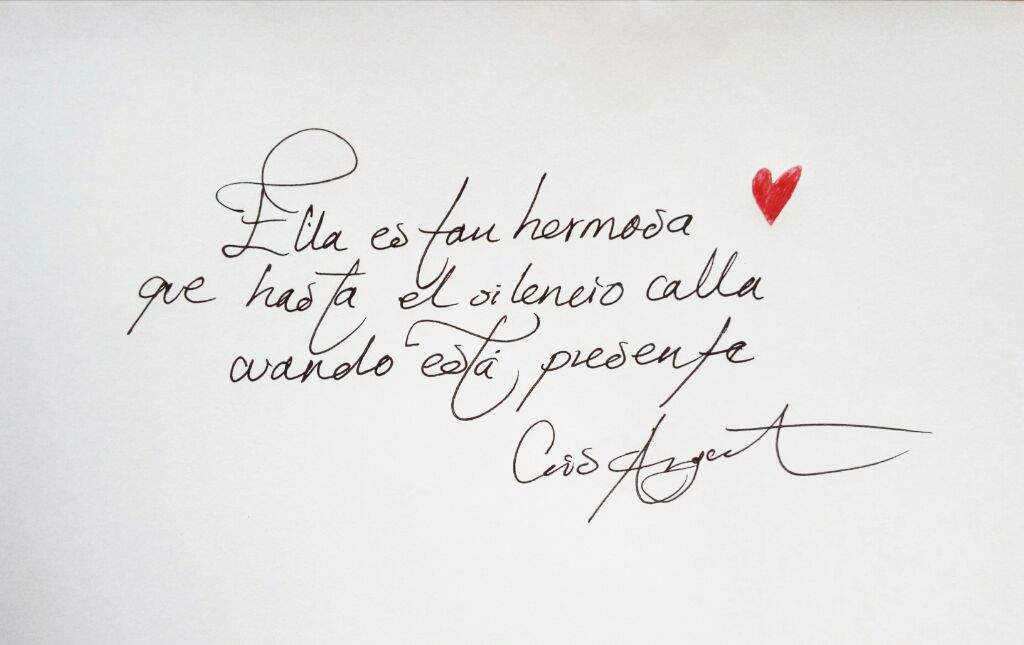 Ella es tan hermosa
que hasta el silencio calla
cuando está presente
Cris Argent